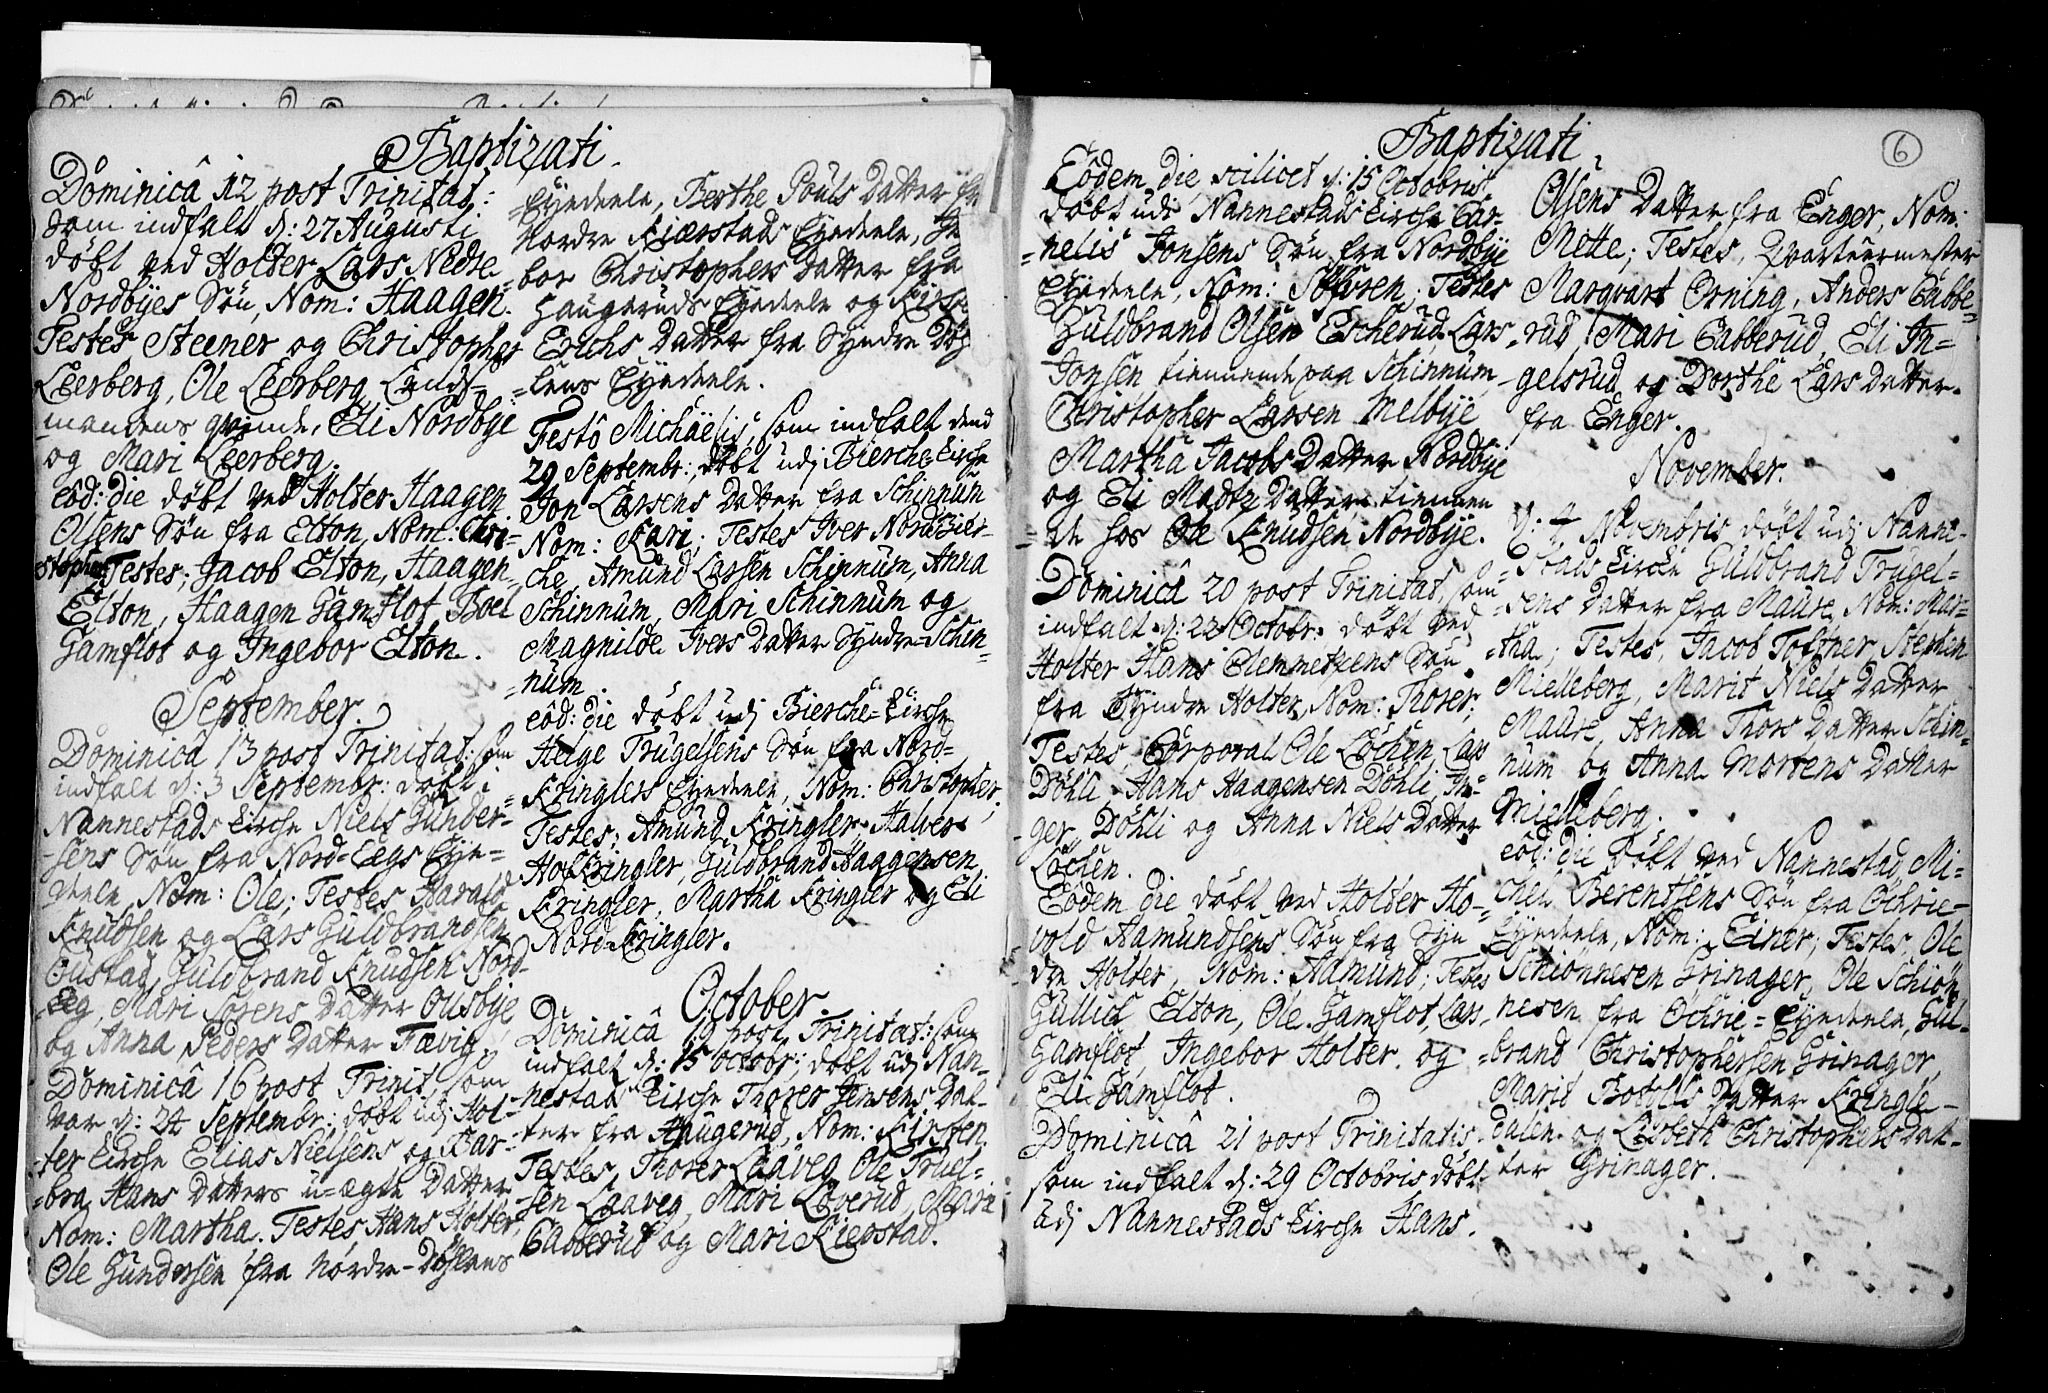 Baptizati.
Dominicâ 12 post Trinitat:
som indfalt d: 27 Augusti
døbt ved Holter Lars Nedre
Nordbyes Søn, Nom: Haagen.
Testes Steener og Christopher
Leerberg, Ole Leerberg, Lends-
mandens qvinde, Eli Nordbye
og Mari Leerberg.
eôd: die døbt ved Holter Haagen
Olsens Søn fra Elton, Nom: Chri-
stopher Testes; Jacob Elton, Haagen
Elton, Haagen Gamflot, Boel
Gamflot og Ingebor Elton.
September.
Dominicâ 13 post Trinitat: som
indfalt d: 3 Septembr: døbt i
Nannestads Kirche Niels Gunder-
sens Søn fra Nord-Eegs Eye-
deele, Nom: Ole; Testes Harald
Knudsen og Lars Guldbrandsen
Oustad, Guldbrand Knudsen Nord-
Eeg, Mari Sørens Datter Ousbye
og Anna Peders Datter Fævig
Dominicâ 16 post Trinit: som
var d: 24 Septembr: døbt udj Hol-
ter Kirche Elias Nielsens og Bar-
bra Hans Datters u-ægte Datter
Nom: Martha. Testes, Hans Holter,
Ole Gundersen fra Nordre-Døhlens
Eyedeele, Berthe Pouls Datter fra
Nordre Kierstads Eyedeele,
bor Christophers Datter fra
Haugeruds Eyedeele og
Erichs Datter fra Syndre Døh-
lens Eyedeele.
Festô Michaëlis, som indfalt dend
29 Septembr:, døbt udj Bierche Kirche
Jon Larsens Datter fra Schinnum
Nom: Kari. Testes Iver Nord Bier-
che, Amund Larsen Schinnum, Anna
Schinnum, Mari Schinnum og
Magnilde Ivers Datter Syndre-Schin-
num.
eôd: die døbt udj Bierche-Kirche
Helge Trugelsens Søn fra Nord-
Kringlers Eyedeele, Nom: Christopher,
Testes; Amund Kringler, Halvor
Hof Kringler, Guldbrand Haagensen
Kringler, Martha Kringler og Eli
Nord-Kringler.
October.
Dominicâ 19 post Trinitat: som
indfalt d: 15 Octobr:, døbt udj Nan-
nestads Kirche Thorer Jensens Dat-
ter fra Haugerud, Nom: Kirsten.
Testes, Thorer Laaveg, Ole Truel-
sen Laaveg, Mari Løverud, Mari
Cabberud og Mari Kierstad.
Baptizati
6
Eôdem die scilicet d: 15 Octobris
døbt udi Nannestads Kirche Cor-
nelis Jonsens Søn fra Nordbye
Eyedeele, Nom: Søfren; Testes
Guldbrand Olsen Escherud, Lars
Jonsen tiennende paa Schinnum,
Christopher Larsen Melbye
Martha Jacobs Datter Nordbye
og Eli Madtz Datter tiennen-
de hos Ole Knudsen Nordbye.
Dominicâ 20 post Trinitat, som
indfalt d: 22 Octobr. døbt ved
Holter Hans Clemmetzens Søn
fra Syndre Holter, Nom: Thorer;
Testes, Corporal Ole Løchen, Lars
Døhli, Hans Haagensen Døhli, In-
ger Døhli og Anna Niels Datter
Løchen.
Eôdem die døbt ved Holter Ho-
vold Aamundsens Søn fra Syn-
dre Holter, Nom: Aamund; Testes
Gullich Elton, Ole Gamflot, Lars
Gamflot, Ingebor Holter og
Eli Gamflot.
Dominicâ 21 post Trinitatis
som indfalt d: 29 Octobris døbt
udj Nannestads Kirche Hans
Olsens Datter fra Enger, Nom:
Mette; Testes, Qvarteermester
Marqvart Orning, Anders Cabbe-
rud, Mari Cabberud, Eli In-
gelsrud og Dorthe Lars Datter
fra Enger.
November.
d: 4 Novembris døbt udj Nanne-
stads Kirche Guldbrand Trugel-
sens Datter fra Maure, Nom: Mar-
tha; Testes, Jacob Toftner, Steenen
Mielleberg, Marit Niels Datter
Maure, Anna Thors Datter Schin-
num og Anna Mortens Datter
Mielleberg.
eôd: die døbt ved Nannestad, Mi-
chel Berentsens Søn fra Ochrie-
Eyedeele, Nom: Einer; Testes, Ole
Schiønnesen Grinager, Ole Schiøn-
nesen fra Ochrie-Eyedeele, Gul-
brand Christophersen Grinager,
Marit Botolls Datter Kringle-
dalen og Lisbeth Christophers Dat-
ter Grinager.